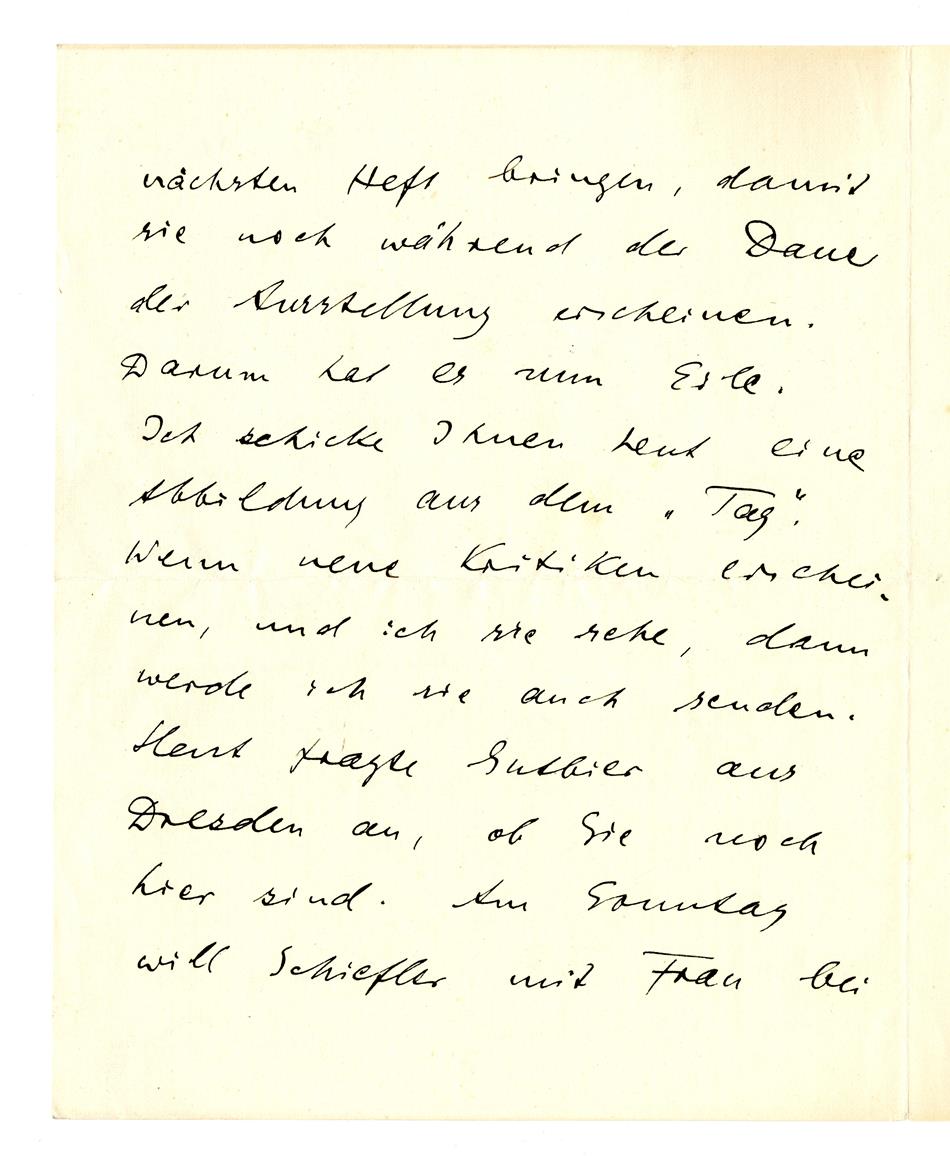 nächsten Heft bringen, damit
sie noch während der Dauer
der Ausstellung erscheinen.
Darum hat es nun Eile.
Ich schicke Ihnen heut eine
Abbildung aus dem „Tag“.
Wenn neue Kritiken erschei-
nen, und ich sie sehe, dann
werde ich sie auch senden.
Heut fragte Gutbier aus
Dresden an, ob Sie noch
hier sind. Am Sonntag
will Schiefler mit Frau bei